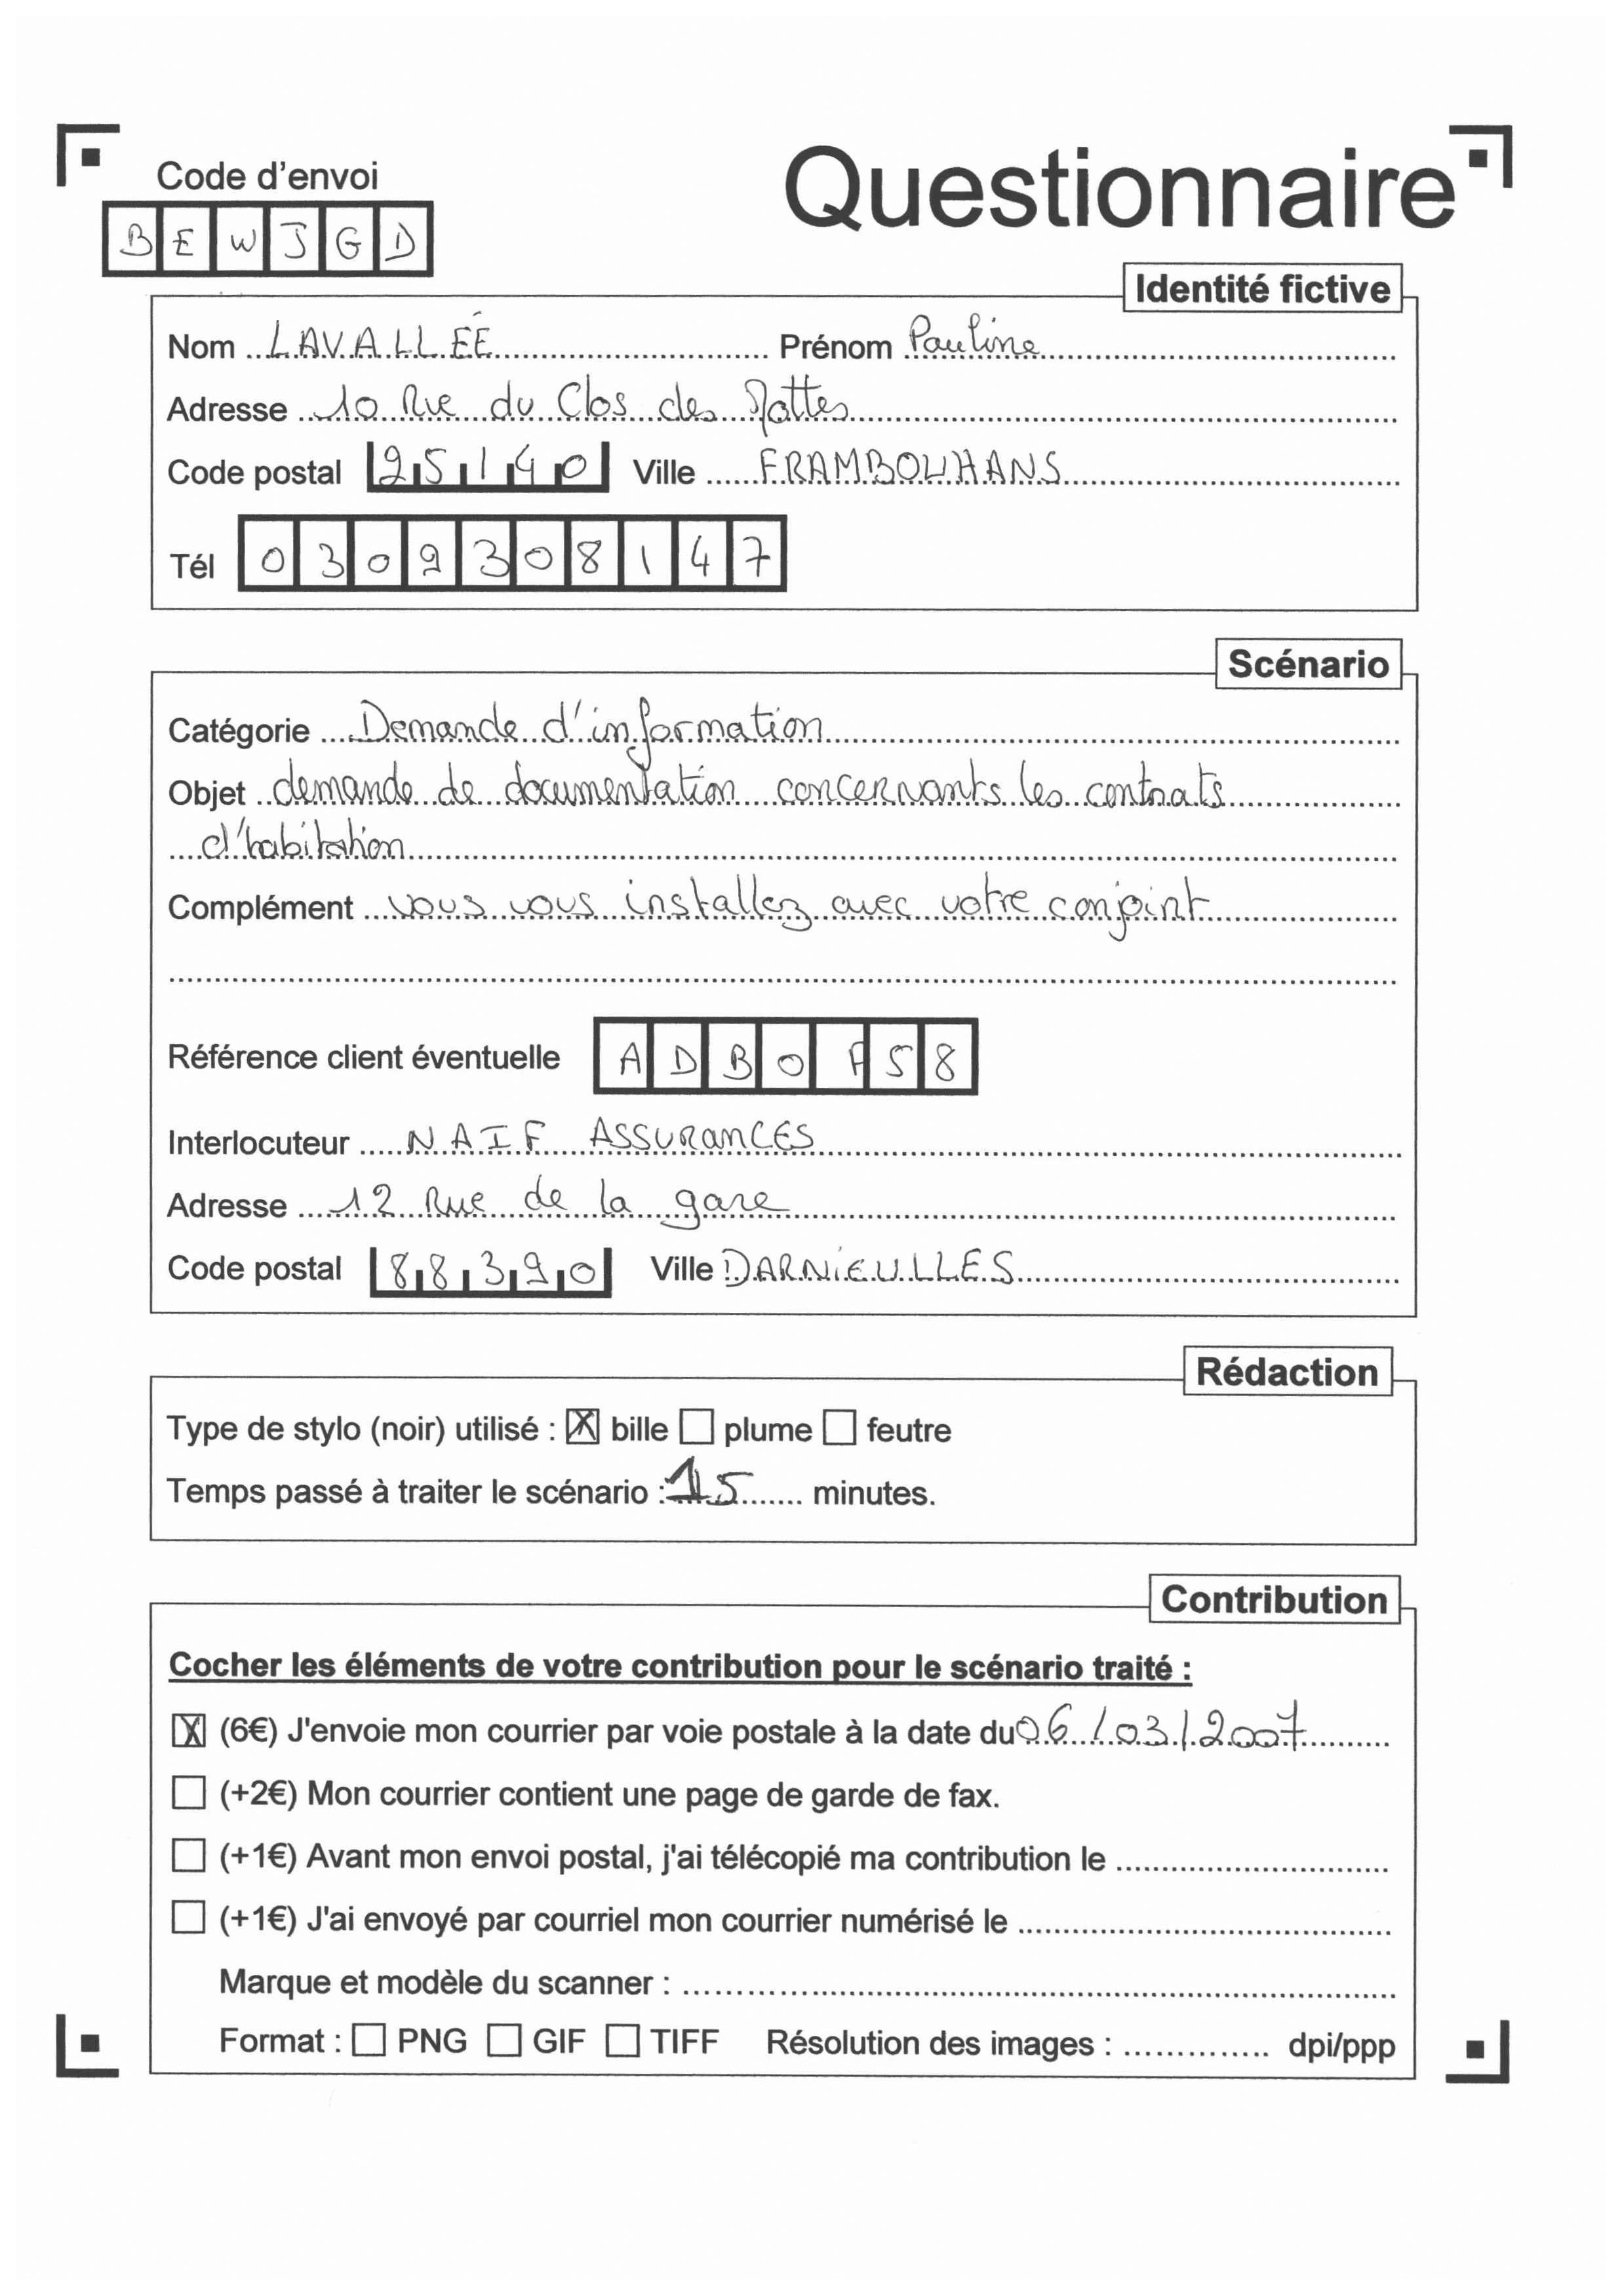 Code d'envoi
Questionnaire
BEWJGD
Identité fictive
Nom LAVALLÉE Prénom Pauline
Adresse 10 Rue du Clos des Mottes
Code postal 25140 Ville FRAMBOUHANS
Tél 0309308147
Scénario
Catégorie Demande d'information
Objet demande de documentation concernants les contrats
d'habitation
Complément vous vous installez avec votre conjoint
Référence client éventuelle ADBOF58
Interlocuteur NAIF ASSURANCES
Adresse 12 Rue de la gare
Code postal 88390 Ville DARNIEULLES
Rédaction
Type de stylo (noir) utilisé : ☒ bille ☐ plume ☐ feutre
Temps passé à traiter le scénario : 15 minutes.
Contribution
Cocher les éléments de votre contribution pour le scénario traité :
☒ (6€) J'envoie mon courrier par voie postale à la date du 06/03/2007
☐ (+2€) Mon courrier contient une page de garde de fax.
☐ (+1€) Avant mon envoi postal, j'ai télécopié ma contribution le
☐ (+1€) J'ai envoyé par courriel mon courrier numérisé le
Marque et modèle du scanner :
Format : ☐ PNG ☐ GIF ☐ TIFF Résolution des images : dpi/ppp